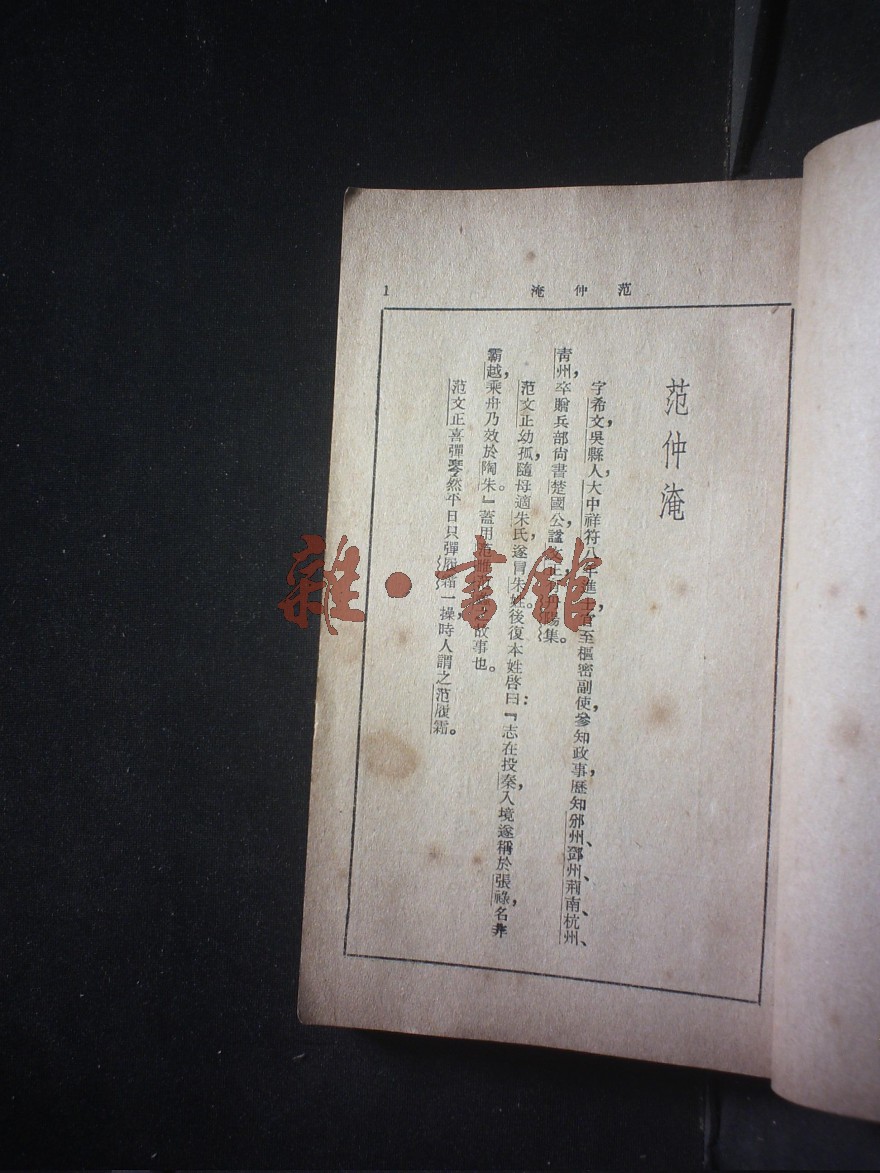 范仲淹
1
范仲淹
字希文，吳縣人，大中祥符八年進士，官至樞密副使，參知政事，歷知邠州、鄧州、荊南、杭州、
青州，卒贈兵部尚書，楚國公，諡文正，有丹陽集。
范文正幼孤，隨母適朱氏，遂冒朱姓。後復本姓，啓曰：『志在投秦，入境遂稱於張祿，名非
霸越，乘舟乃效於陶朱。』蓋用范故事也。
范文正喜彈琴，然平日只彈履霜一操，時人謂之范履霜。
雜·書館